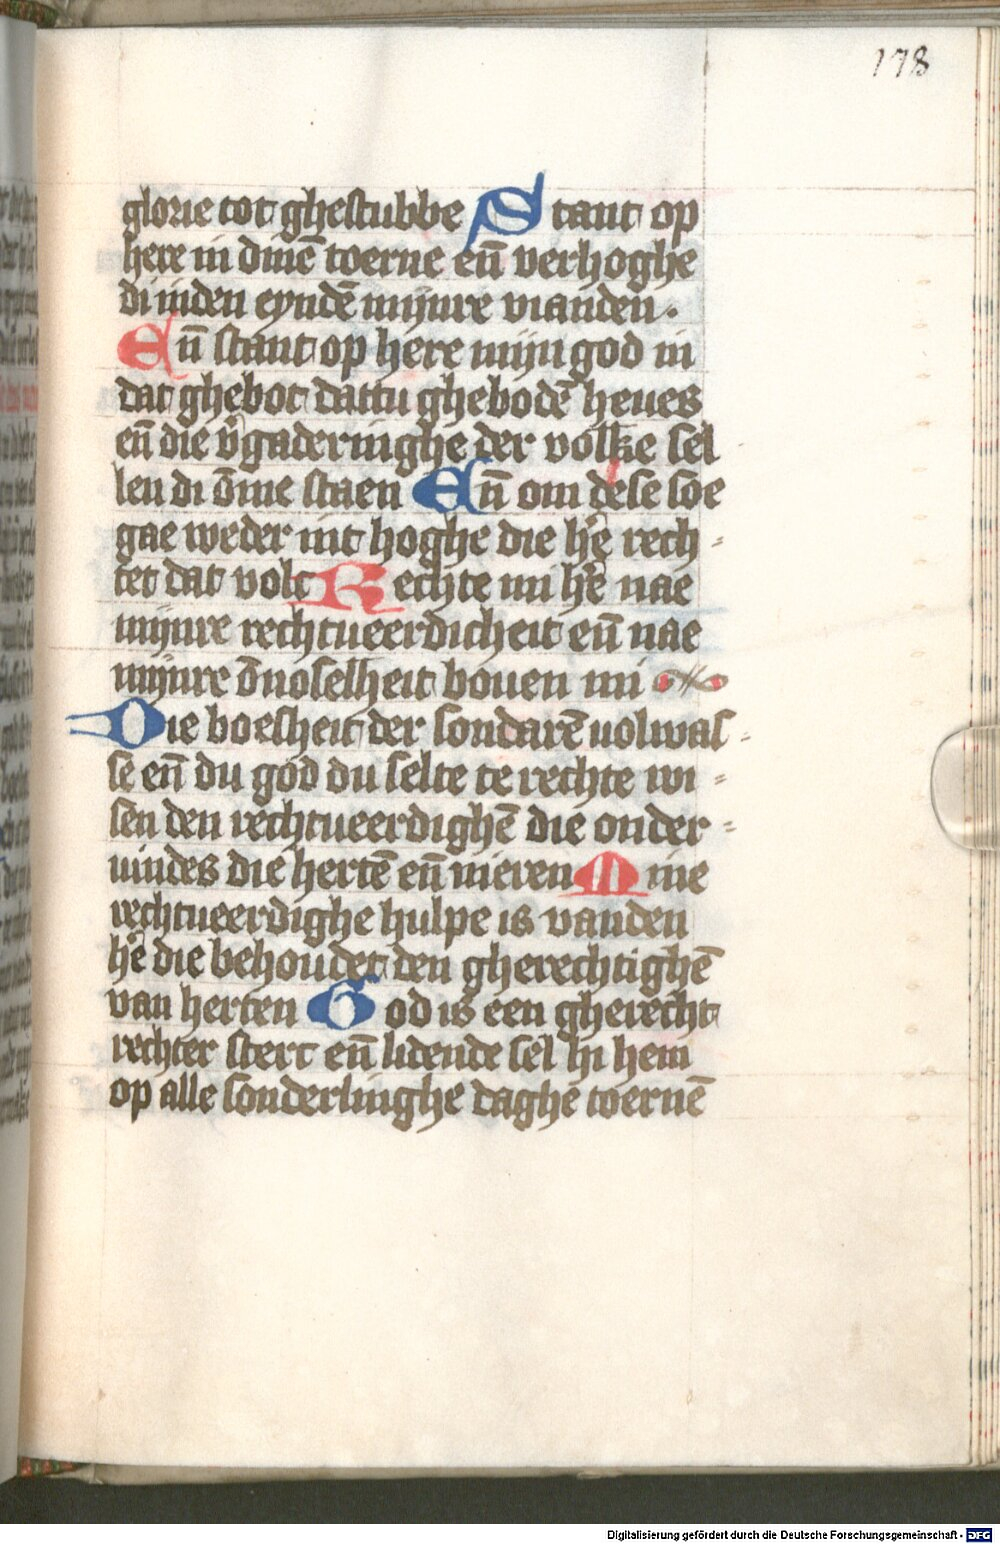 178
glorie tot ghestubbe Stant op
here in dinē toerne eñ verhoghe
di inden eyndē mijnre vianden.
Eñ stant op here mijn god in
dat ghebot dattu ghebodē heues
eñ die v̄gaderinghe der volke sel
len di ōme staen Eñ om dese soe
gae weder int hoghe die he͛ rech-
tet dat volc Rechte mi he͛ nae
mijnre rechtueerdicheit eñ nae
mijnre ōnoselheit bouen mi
Die boesheit der sondarē uolwas-
se eñ du god du selte te rechte wi-
sen den rechtueerdighē die onder-
uindes die hertē eñ nieren Mine
rechtueerdighe hulpe is vanden
he͛ die behoudet den gherechtighē
van herten God is een gherecht
rechter sterc eñ lidende sel hi hem
op alle sonderlinghe daghe toernē
Digitalisierung gefördert durch die Deutsche Forschungsgemeinschaft - DFG